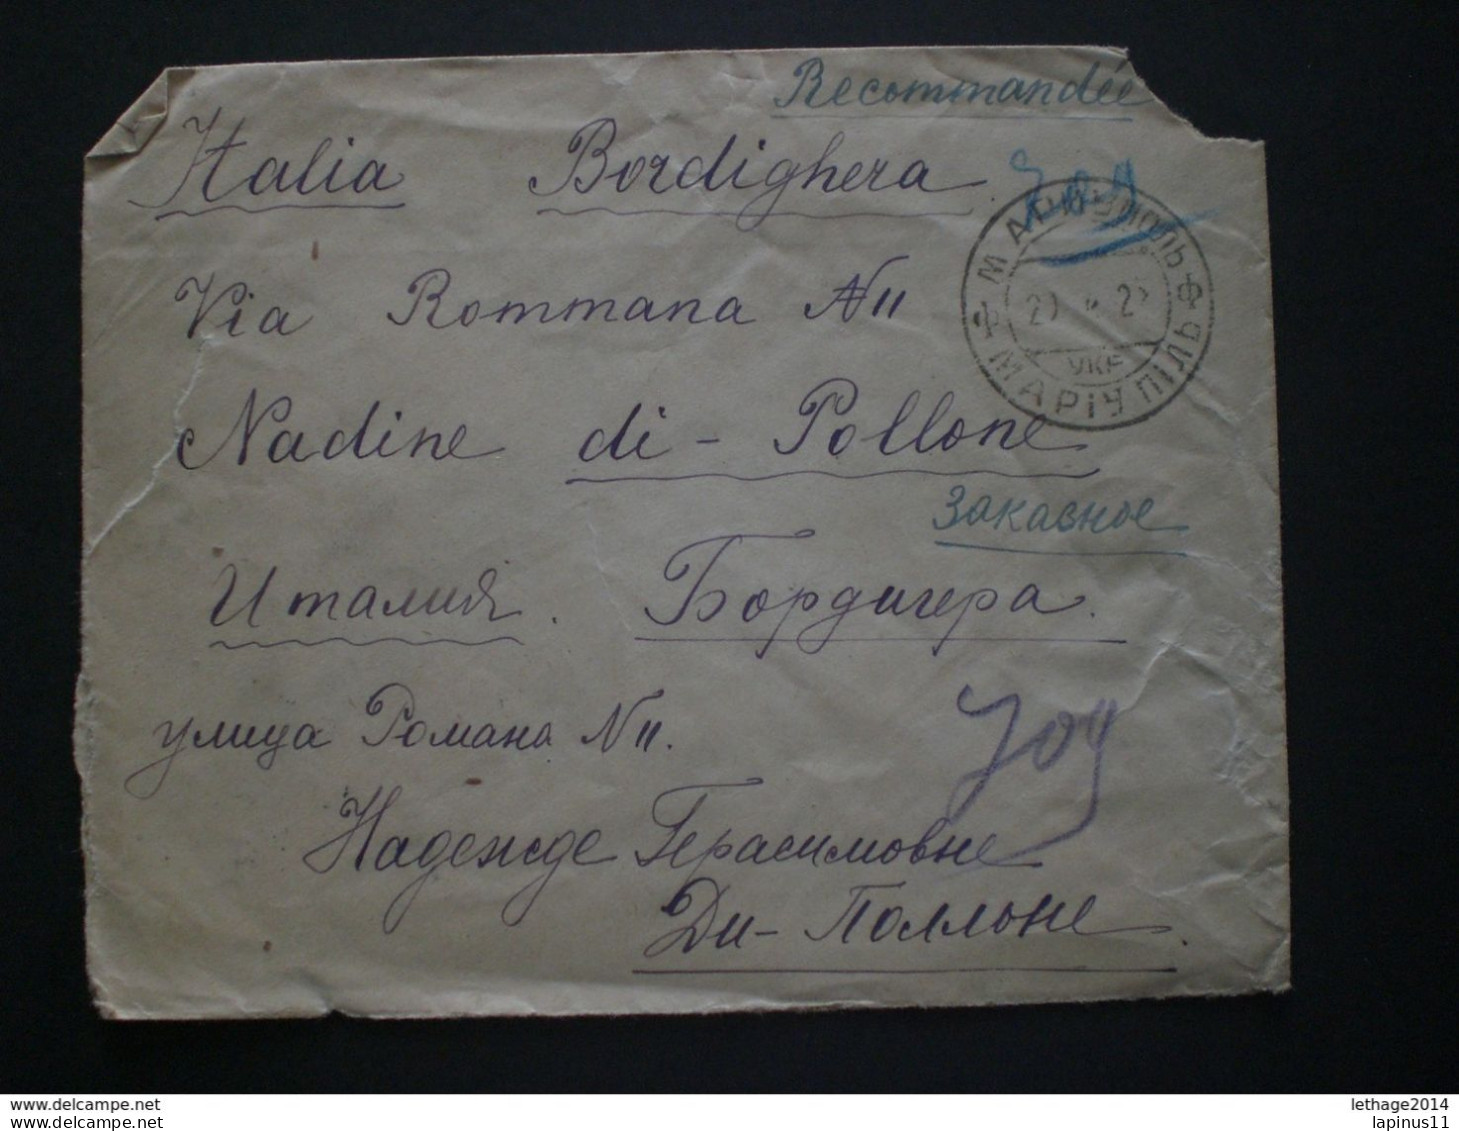 Recommandée
Italia Bordighera
709
МАРИУПОЛЬ
УКР
МАРІУПІЛЬ
Via Rommana N 11
Nadine di - Pollone
Заказное
Италия. Бордигера.
улица Романа N 11.
709
Надежде Герасимовне
Ди - Поллоне.
www.delcampe.net
www.delcampe.net
lethage2014
lapinus11